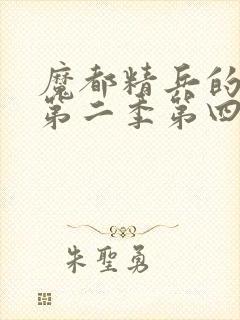 魔都精兵的
第二季第四
朱聖勇